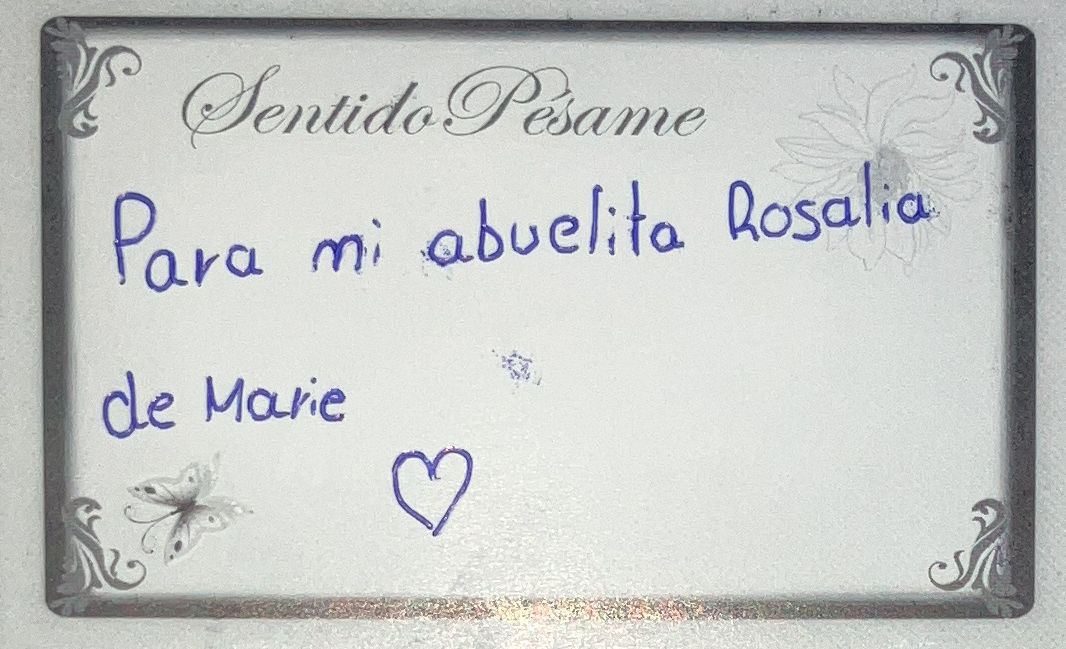 Sentido Pésame
Para mi abuelita Rosalia
de Marie